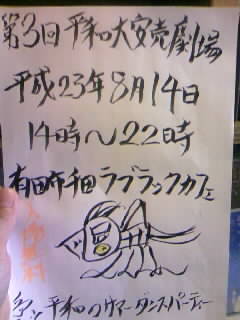 第3回 平和大安売劇場
平成23年8月14日
14時～22時
有田市千田ラブラックカフェ
入場無料
平和のサマーダンスパーティー